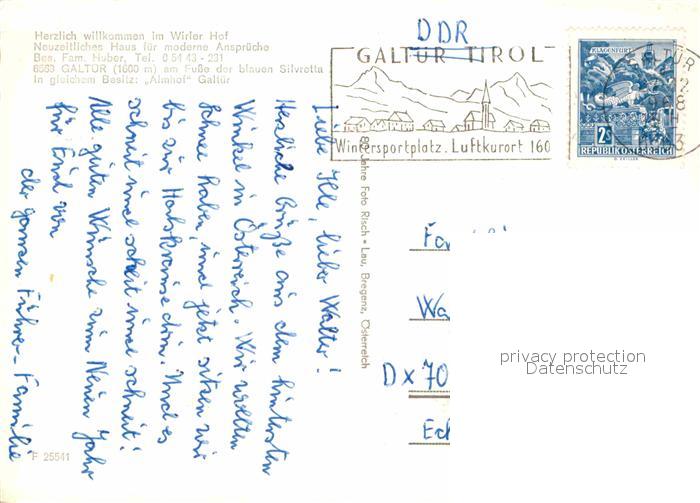 Herzlich willkommen im Wirler Hof
Neuzeitliches Haus für moderne Ansprüche
Bes. Fam. Huber, Tel. 0 54 43 - 231
6563 GALTÜR (1600 m) am Fuße der blauen Silvretta
In gleichem Besitz: „Almhof" Galtür
DDR
GALTÜR TIROL
Wintersportplatz. Luftkurort 160
KLAGENFURT
2S
REPUBLIK ÖSTERREICH
Liebe Ille, lieber Walter!
Herzliche Grüße aus dem hintersten
Winkel in Österreich. Wir wollten
Schnee haben, und jetzt sitzen wir
bis zur Halskrause drin. Und es
schneit und schneit und schneit!
Alle guten Wünsche zum Neuen Jahr
für Euch von
der ganzen Führer-Familie
Jahre Foto Risch • Lau, Bregenz, Österreich
Wa
D x 70
F 25541
privacy protection
Datenschutz